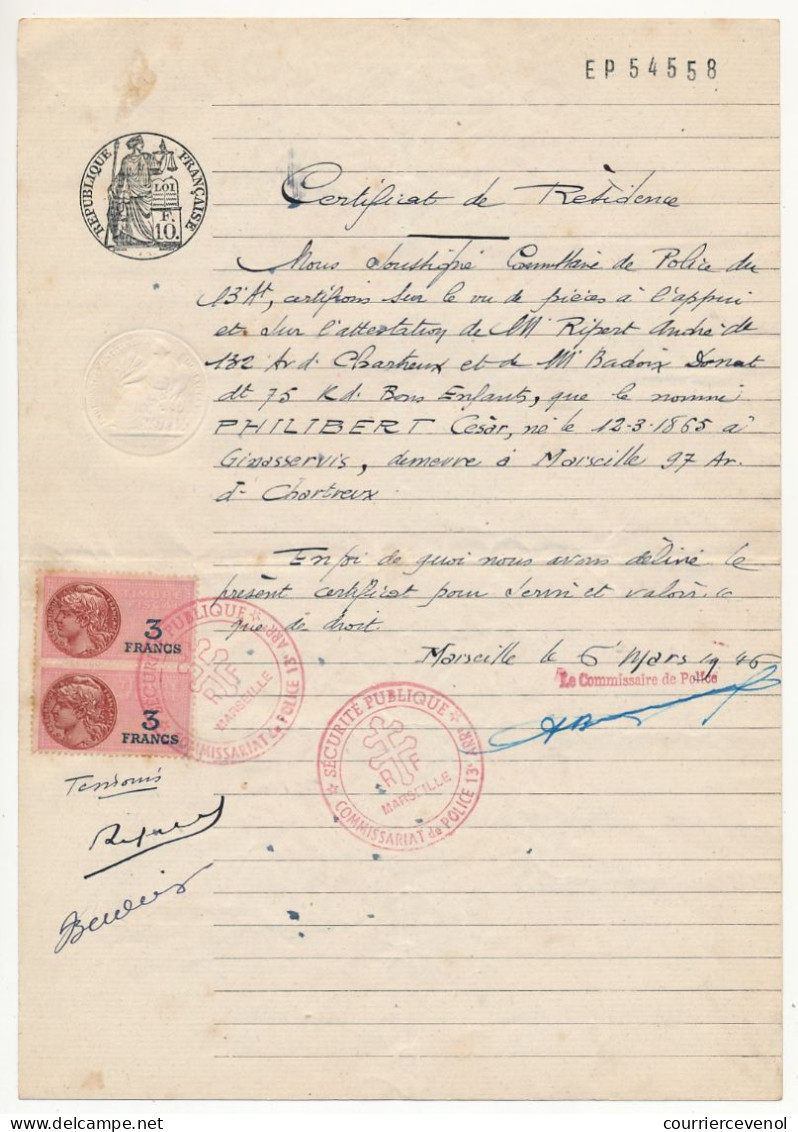 EP 54558
RÉPUBLIQUE FRANÇAISE
LOI
F.
10.
Certificat de Résidence
Nous soussigné Commissaire de Police du
13e Art, certifions sur le vu de pièces à l'appui
et sur l'attestation de M. Ripert André dt
132 Av d. Chartreux et de M. Badoix Donat
dt 75 R d. Bons Enfants, que le nommé
PHILIBERT César, né le 12-3-1865 à
Ginasservis, demeure à Marseille 97 Av.
d. Chartreux
En foi de quoi nous avons délivré le
présent certificat pour servir et valoir ce
que de droit.
Marseille le 6 Mars 1946
Le Commissaire de Police
3
FRANCS
3
FRANCS
SÉCURITÉ PUBLIQUE
RF
MARSEILLE
COMMISSARIAT de POLICE 13e ARRt
SÉCURITÉ PUBLIQUE
RF
MARSEILLE
COMMISSARIAT de POLICE 13e ARRt
Temoins
www.delcampe.net
courriercevenol